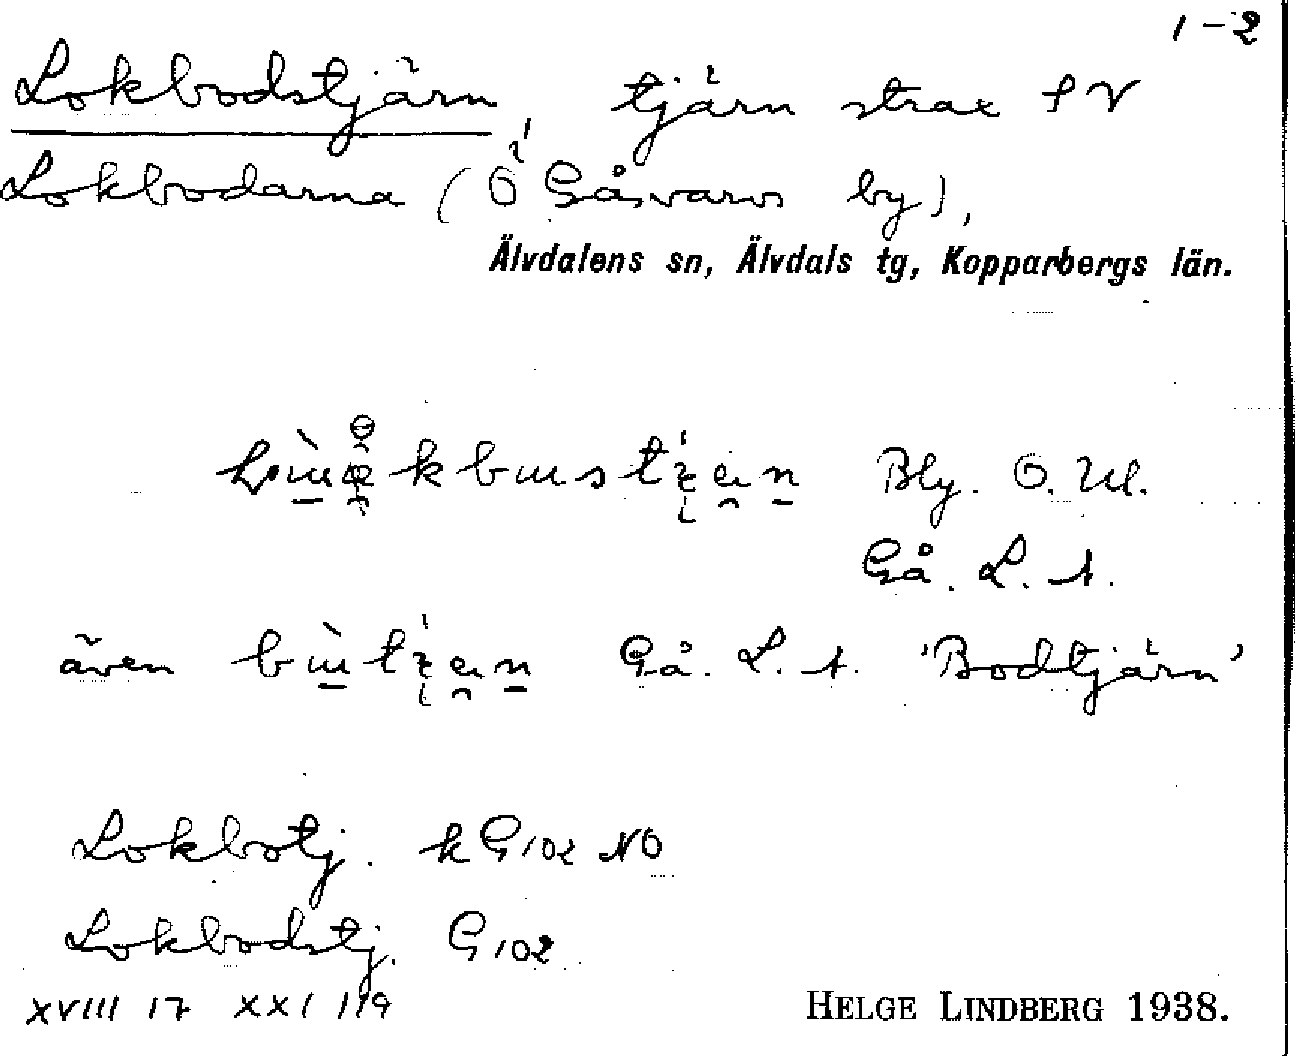 1-2
Lokbodstjärn, tjärn strax SV
Lokbodarna (Ö Gåsvarvs by),
Älvdalens sn, Älvdals tg, Kopparbergs län.
Bly. O. Ul.
Gå. L. A.
även Gå. L. A. 'Bodtjärn'
Lokbotj. kG102 NO
Lokbodstj. G102
XVIII 17 XXI 119
HELGE LINDBERG 1938.